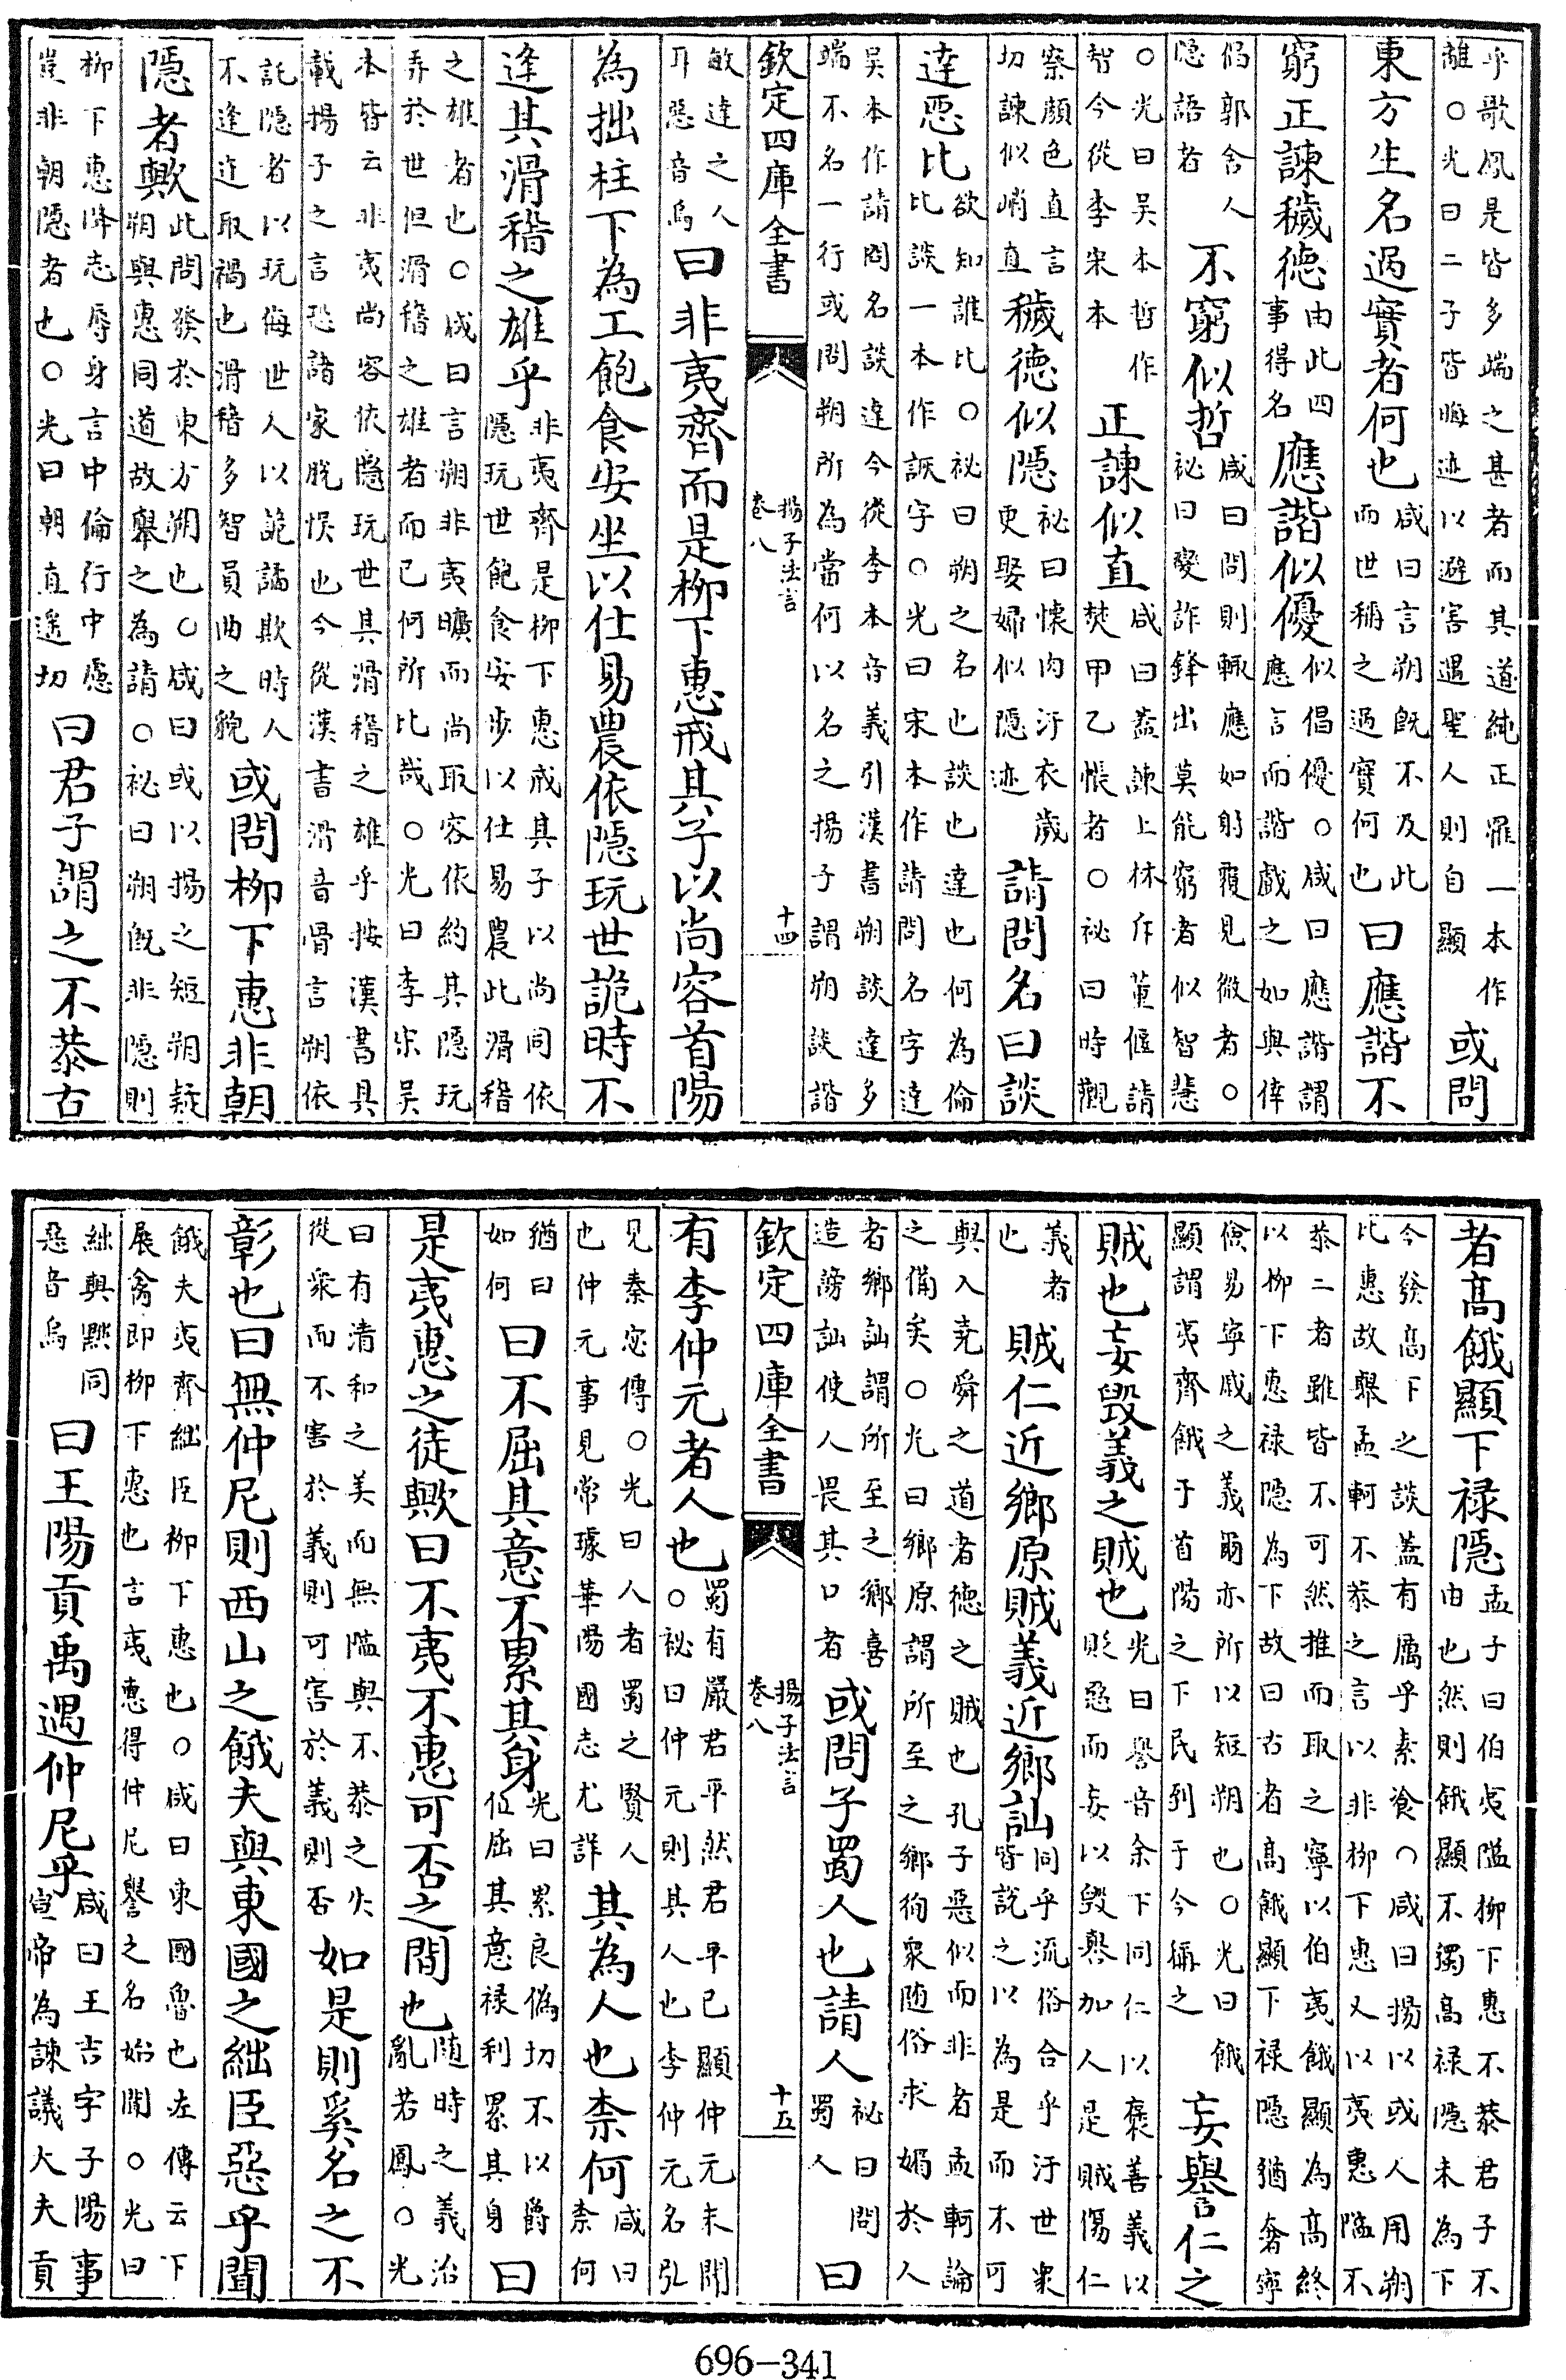 乎歌鳳是皆多端之甚者而其道純正罹一本作
離○光曰二子皆晦迹以避害遇聖人則自顯
或問
東方生名過實者何也
咸曰言朔既不及此
而世稱之過實何也
曰應諧不
窮正諫穢德
由此四
事得名
應諧似優
似倡優○咸曰應諧謂
應言而諧戲之如與倖
倡郭舍人
隠語者
不窮似哲
咸曰問則輒應如射覆見微者○
祕曰變詐鋒出莫能窮者似智慧
○光曰吳本哲作
智今從李宋本
正諫似直
咸曰蓋諫上林斥董偃請
焚甲乙帳者○祕曰時觀
察顔色直言
切諫似峭直
穢德似隠
祕曰懐肉汙衣歲
更娶婦似隠迹
請問名曰談
達惡比
欲知誰比○祕曰朔之名也談也達也何為倫
比談一本作詼字○光曰宋本作請問名字達
吳本作請問名談達今從李本音義引漢書朔談達多
端不名一行或問朔所為當何以名之揚子謂朔談諧
欽定四庫全書
揚子法言
卷八
十四
敏達之人
耳惡音烏
曰非夷齊而是柳下惠戒其子以尚容首陽
為拙柱下為工飽食安坐以仕易農依隠玩世詭時不
逢其滑稽之雄乎
非夷齊是柳下惠戒其子以尚同依
隠玩世飽食安步以仕易農此滑稽
之雄者也○咸曰言朔非夷曠而尚取容依約其隠玩
弄於世但滑稽之雄者而已何所比哉○光曰李宗吳
本皆云非夷尚容依隠玩世其滑稽之雄乎按漢書具
載揚子之言恐諸家脫悮也今從漢書滑音骨言朔依
託隠者以玩侮世人以詭譎欺時人
不逢迕取禍也滑稽多智員曲之貌
或問柳下惠非朝
隠者歟
此問發於東方朔也○咸曰或以揚之短朔疑
朔與惠同道故舉之為請○祕曰朔既非隠則
柳下惠降志辱身言中倫行中慮
豈非朝隠者也○光曰朝直遥切
曰君子謂之不恭古
者髙餓顯下禄隠
孟子曰伯夷隘柳下惠不恭君子不
由也然則餓顯不獨髙禄隠未為下
今發髙下之談蓋有厲乎素飡○咸曰揚以或人用朔
比惠故舉孟軻不恭之言以非柳下惠又以夷惠隘不
恭二者雖皆不可然推而取之寧以伯夷餓顯為髙終
以柳下惠禄隠為下故曰古者髙餓顯下禄隠猶奢寧
儉易寧戚之義爾亦所以短朔也○光曰餓
顯謂夷齊餓于首陽之下民到于今稱之
妄譽仁之
賊也妄毀義之賊也
光曰譽音余下同仁以褒善義以
貶惡而妄以毀譽加人是賊傷仁
義者
也
賊仁近鄉原賊義近鄉訕
同乎流俗合乎汙世衆
皆説之以為是而不可
與入堯舜之道者德之賊也孔子惡似而非者孟軻論
之備矣○光曰鄉原謂所至之鄉徇衆隨俗求媚於人
者鄉訕謂所至之鄉喜
造謗訕使人畏其口者
或問子蜀人也請人
祕曰問
蜀人
曰
欽定四庫全書
揚子法言
卷八
十五
有李仲元者人也
蜀有嚴君平然君平已顯仲元未聞
○祕曰仲元則其人也李仲元名弘
見秦宓傳○光曰人者蜀之賢人
也仲元事見常璩華陽國志尤詳
其為人也柰何
咸曰
柰何
猶曰
如何
曰不屈其意不累其身
光曰累良偽切不以爵
位屈其意禄利累其身
曰
是夷惠之徒歟曰不夷不惠可否之間也
隨時之義治
亂若鳳○光
曰有清和之美而無隘與不恭之失
從衆而不害於義則可害於義則否
如是則奚名之不
彰也曰無仲尼則西山之餓夫與東國之絀臣惡乎聞
餓夫夷齊絀臣柳下惠也○咸曰東國魯也左傳云下
展禽即柳下惠也言夷惠得仲尼譽之名始聞○光曰
絀與黜同
惡音烏
曰王陽貢禹遇仲尼乎
咸曰王吉字子陽事
宣帝為諫議大夫貢
696-341